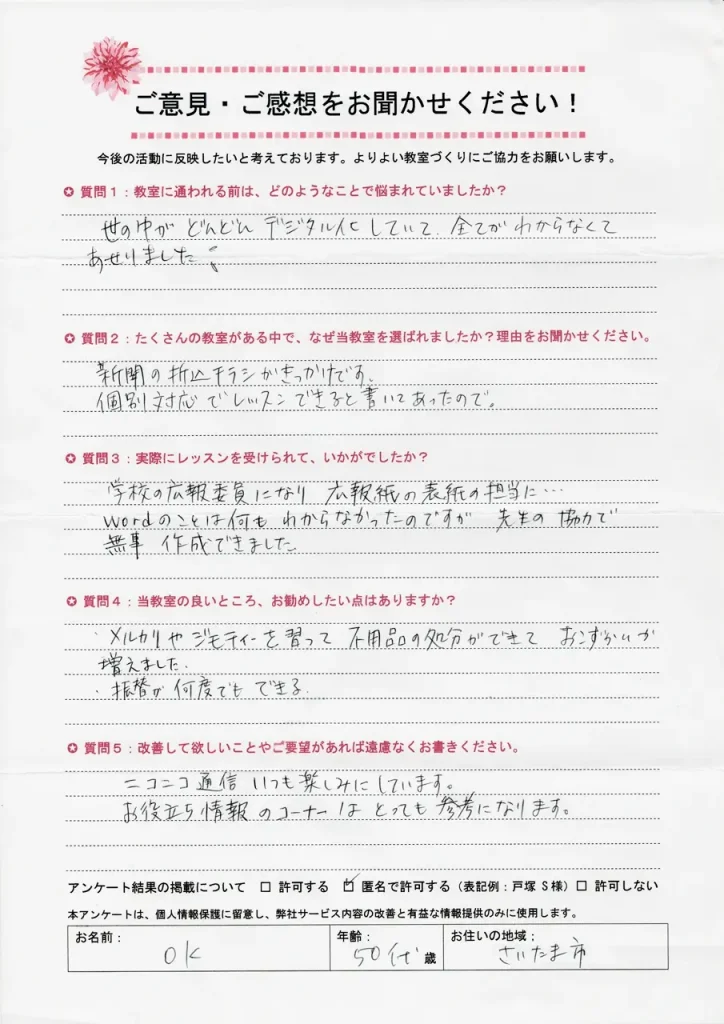 ご意見・ご感想をお聞かせください！
今後の活動に反映したいと考えております。よりよい教室づくりにご協力をお願いします。
✪ 質問1：教室に通われる前は、どのようなことで悩まれていましたか？
世の中が どんどん デジタル化していて、全てがわからなくて
あせりました！
✪ 質問2：たくさんの教室がある中で、なぜ当教室を選ばれましたか？理由をお聞かせください。
新聞の折込チラシがきっかけです。
個別対応でレッスンできると書いてあったので。
✪ 質問3：実際にレッスンを受けられて、いかがでしたか？
学校の広報委員になり 広報紙の表紙の担当に…
wordのことは何も わからなかったのですが 先生の協力で
無事 作成できました
✪ 質問4：当教室の良いところ、お勧めしたい点はありますか？
・メルカリや ジモティーを習って 不用品の処分ができて おこずかいが
増えました。
・振替が何度でも できる。
✪ 質問5：改善して欲しいことやご要望があれば遠慮なくお書きください。
ニコニコ通信 いつも楽しみにしています。
お役立ち情報のコーナーは とっても参考になります。
アンケート結果の掲載について □ 許可する ☑ 匿名で許可する（表記例：戸塚 S様）□ 許可しない
本アンケートは、個人情報保護に留意し、弊社サービス内容の改善と有益な情報提供のみに使用します。
お名前： OK 年齢： 50代 歳 お住いの地域： さいたま市